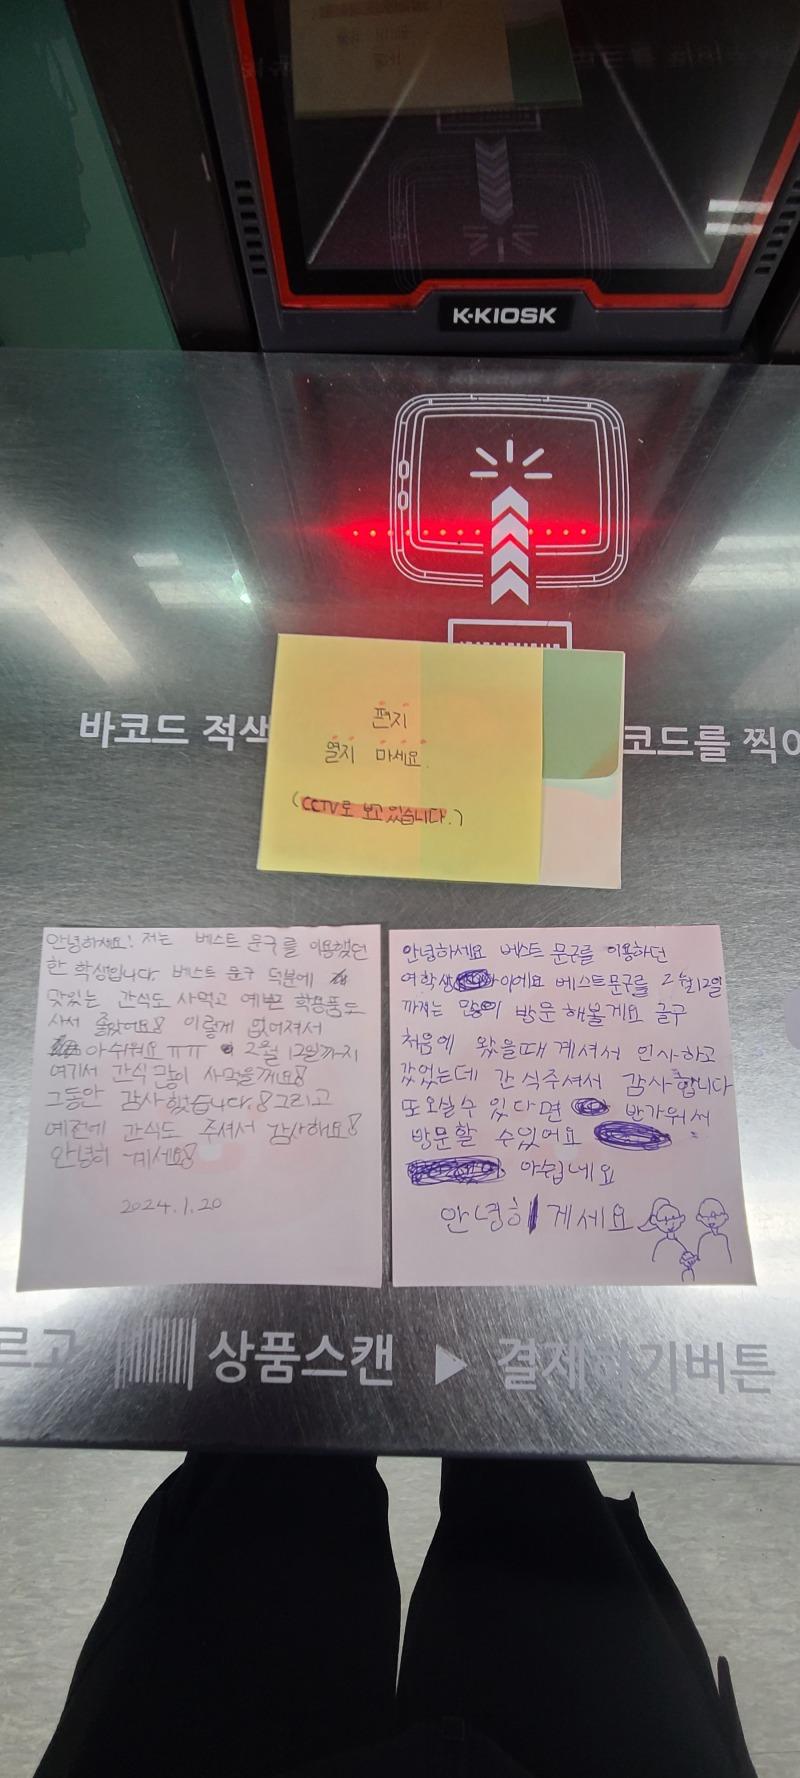 K·KIOSK
바코드 적색
코드를 찍어
편지
열지 마세요.
(CCTV로 보고있습니다.)
안녕하세요! 저는 베스트 문구를 이용했던
한 학생입니다 베스트 문구 덕분에
맛있는 간식도 사먹고 예쁜 학용품도
사서 좋았어요! 이렇게 없어져서
아쉬워요 ㅠㅠ 2월 12일까지
여기서 간식 많이 사먹을께요!
그동안 감사했습니다.! 그리고
예전에 간식도 주셔서 감사해요!
안녕히 계세요!
2024.1.20
안녕하세요 베스트 문구를 이용하던
여학생이에요 베스트문구를 2월12일
까지는 많이 방문 해볼게요 글구
처음에 왔을때 계셔서 인사하고
갔었는데 간식주셔서 감사합니다
또오실수 있다면 반가워서
방문할 수있어요
아쉽네요
안녕히 게세요
르고 상품스캔 ▶ 결제하기버튼